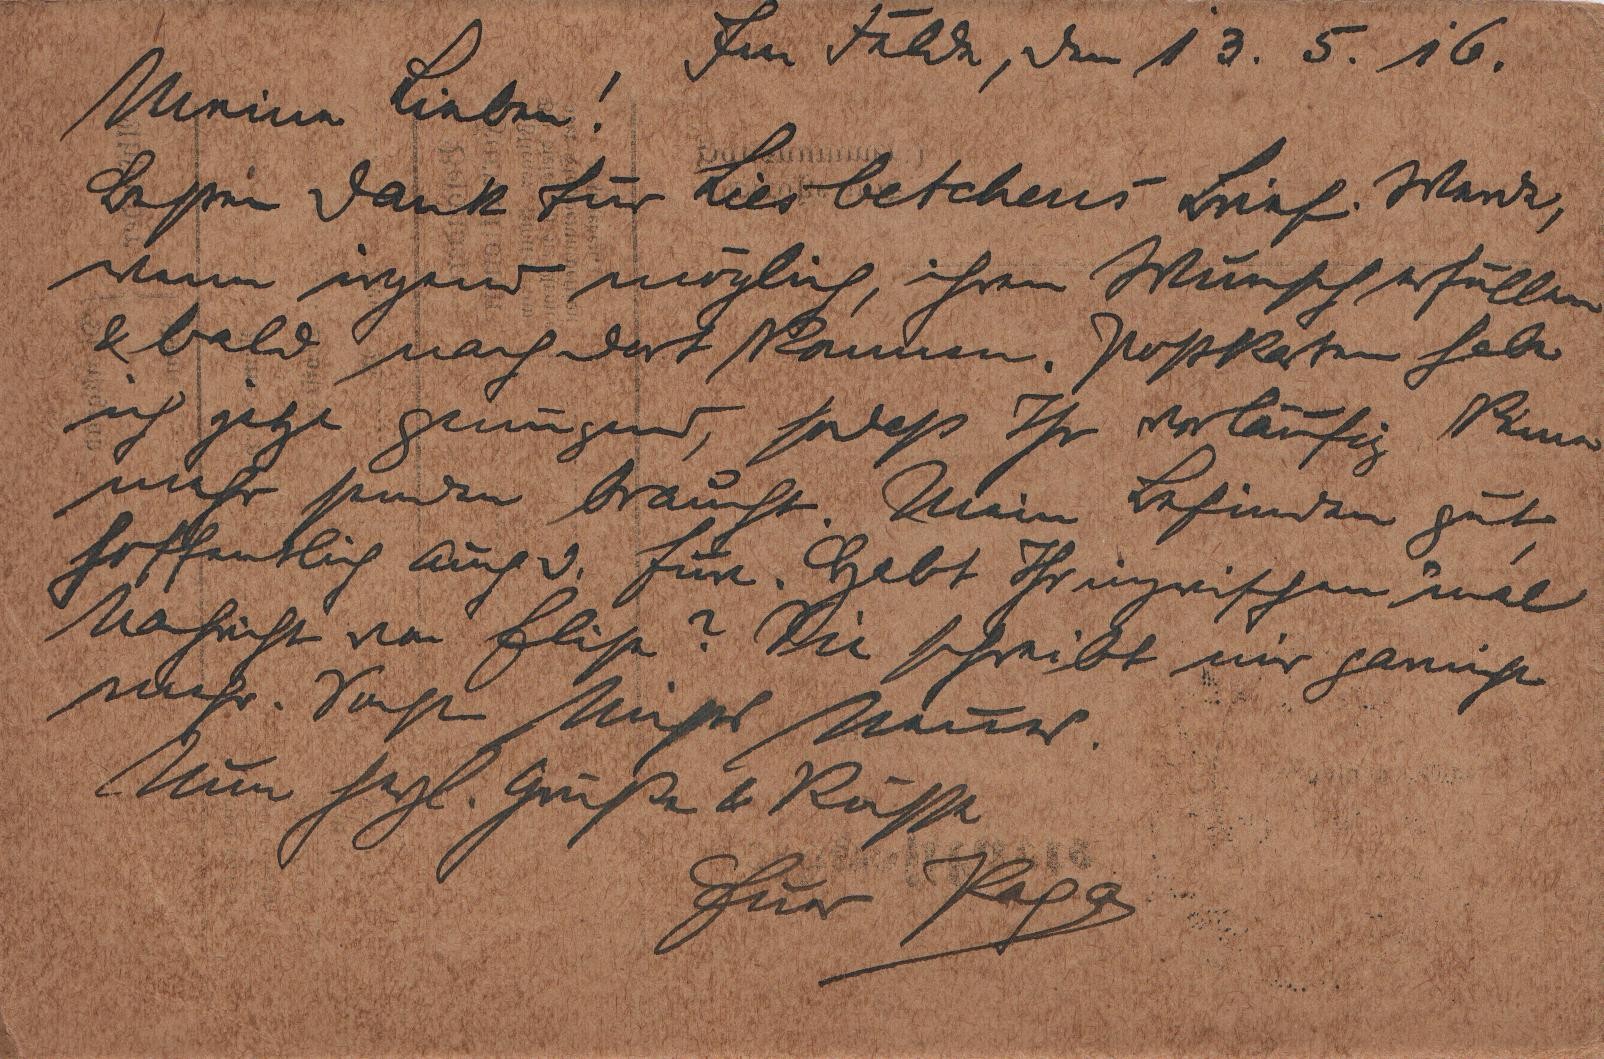 Im Felde, den 13. 5. 16.
Meine Lieben!
Besten Dank für Liesbetchens Brief. Werde,
wenn irgend möglich, ihren Wunsch erfüllen
& bald nach dort kommen. Postkarten habe
ich jetzt genügend, sodass Ihr vorläufig keine
mehr senden braucht. Mein Befinden gut,
hoffentlich auch d. Eure. Habt Ihr inzwischen 'mal
Nachricht von Elise? Sie schreibt mir garnicht
mehr. Sonst Nichts Neues.
Nun herzl. Grüße & Küsse
Euer Papa